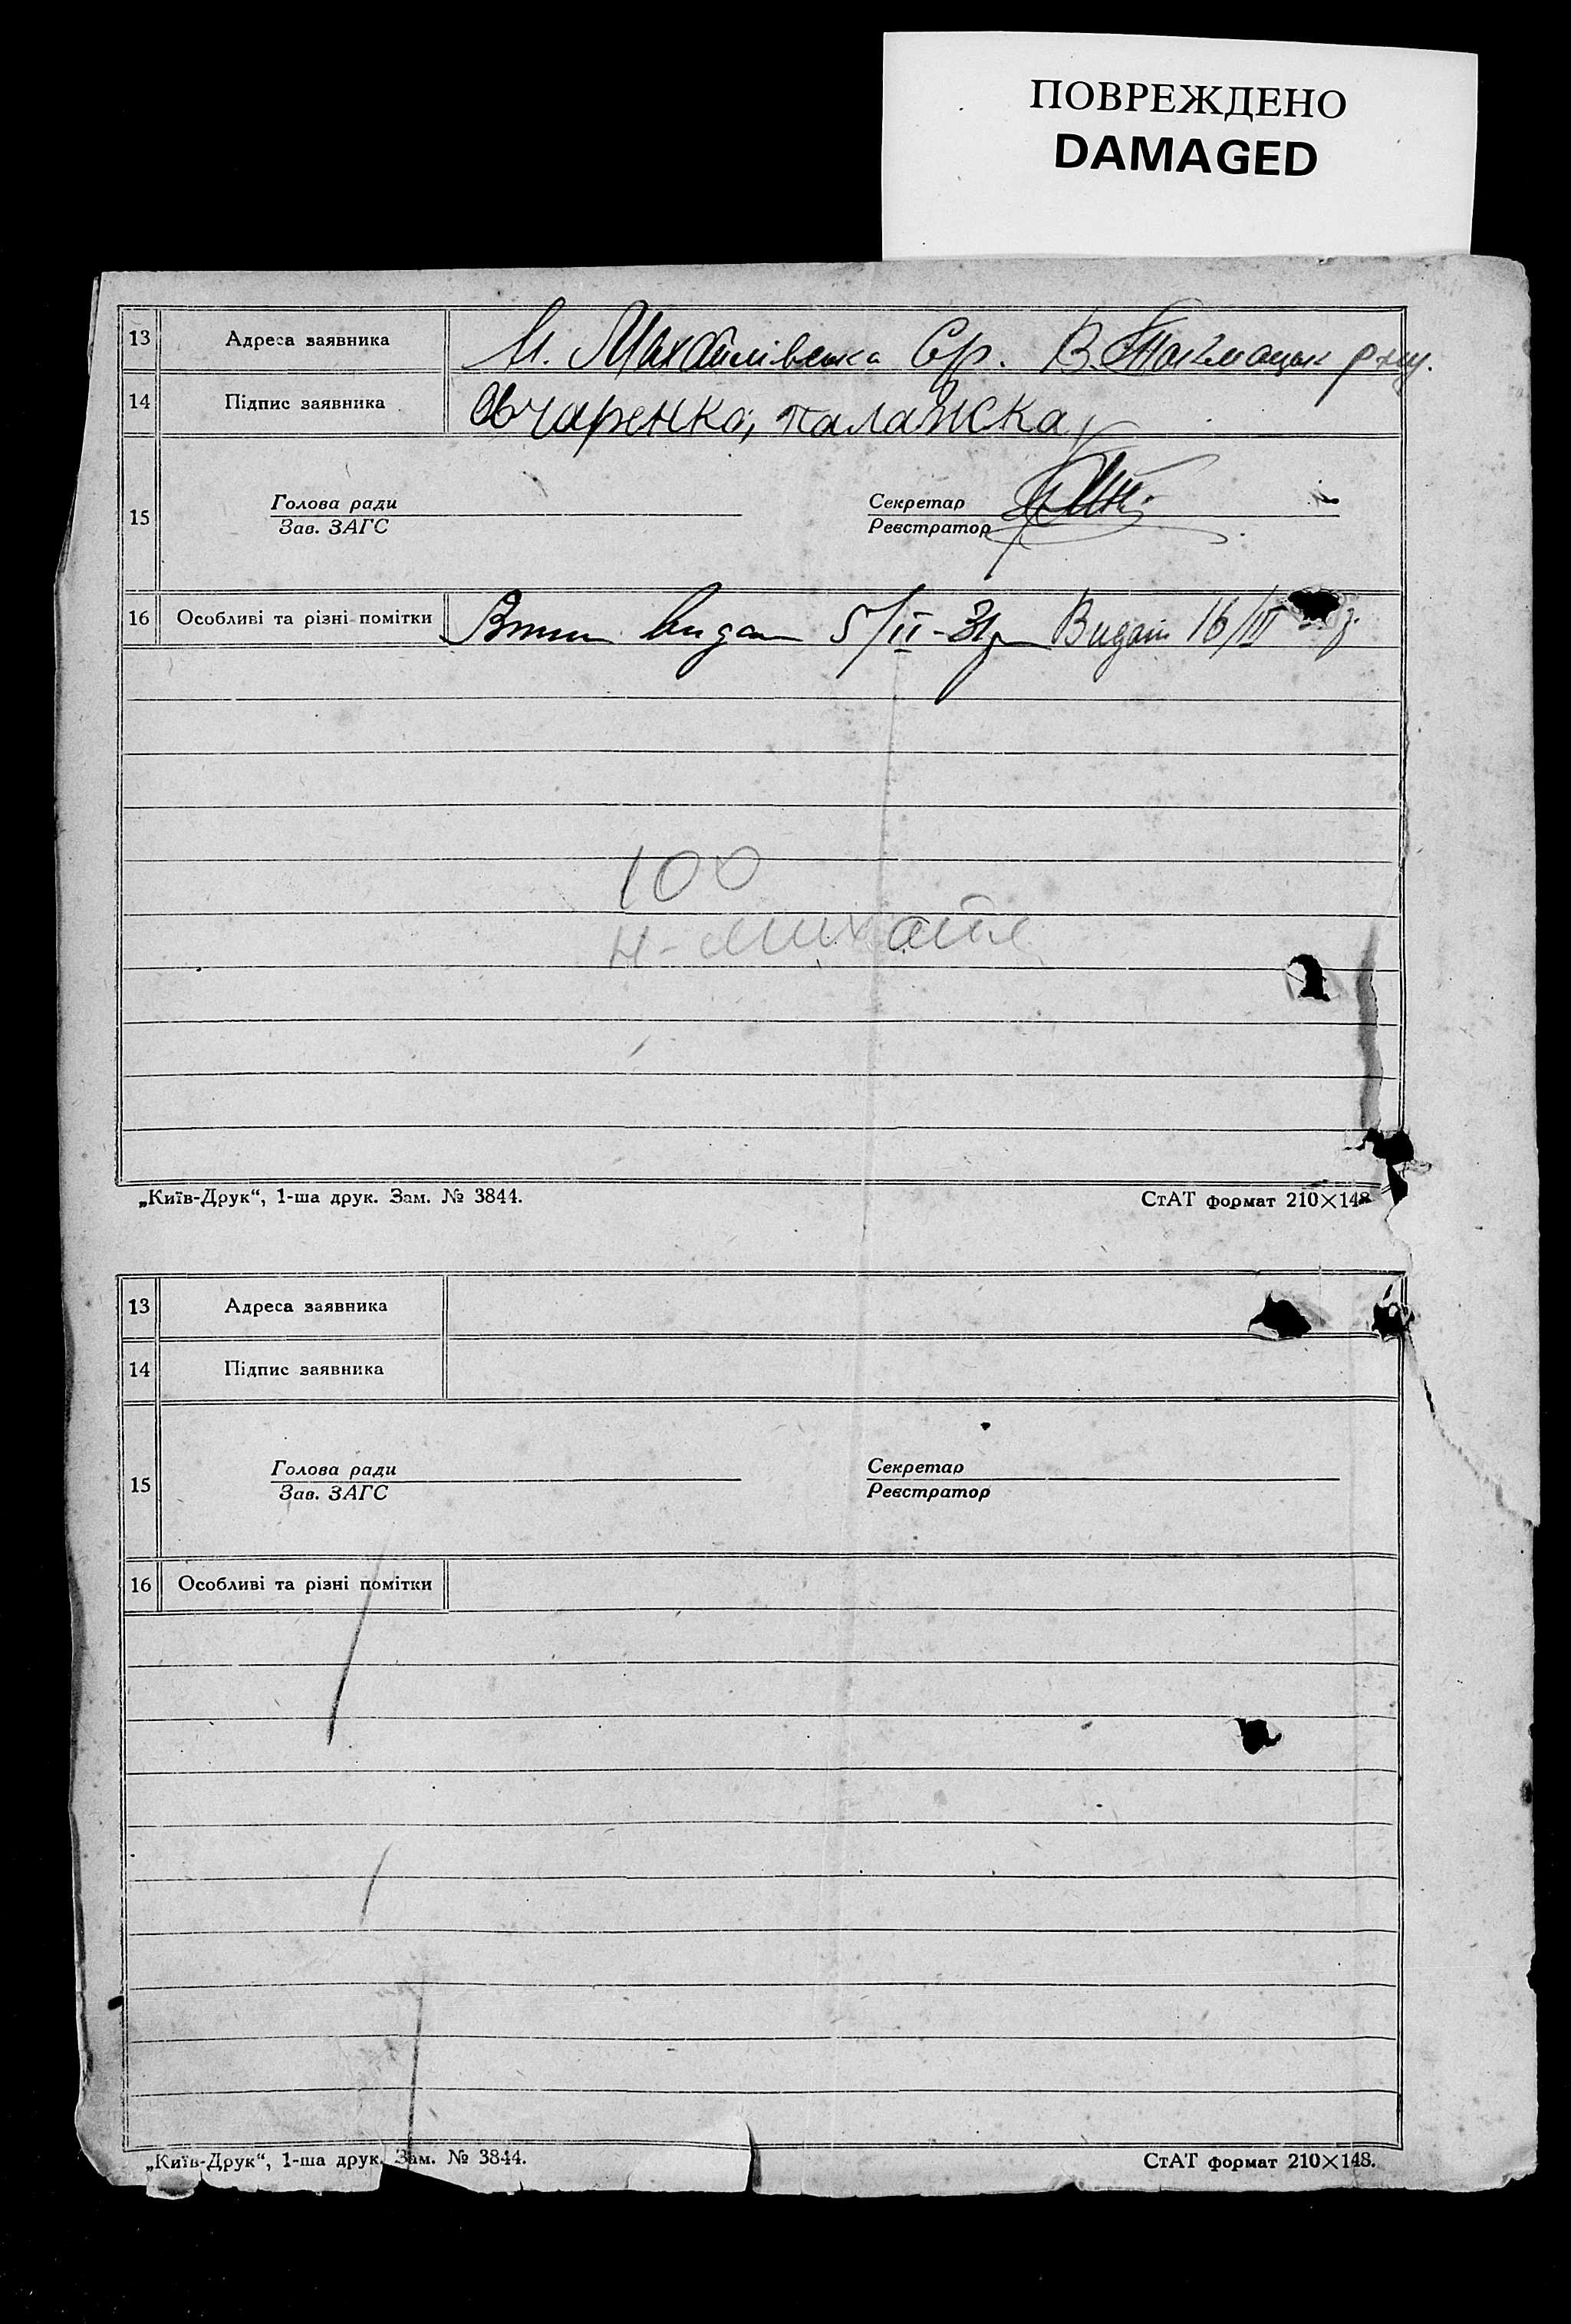 ПОВРЕЖДЕНО
DAMAGED
13 Адреса заявника Н. Михайлівська С/р. В. Токмацьк р-ну.
14 Підпис заявника Овчаренко, палажска
Голова ради Секретар
15
Зав. ЗАГС Реєстратор
16 Особливі та різні помітки видан 5/II-31р Видан 16/III
100
Н-михайл
„Київ-Друк“, 1-ша друк. Зам. № 3844. СтАТ формат 210×148
13 Адреса заявника
14 Підпис заявника
Голова ради Секретар
15
Зав. ЗАГС Реєстратор
16 Особливі та різні помітки
„Київ-Друк“, 1-ша друк. Зам. № 3844. СтАТ формат 210×148.